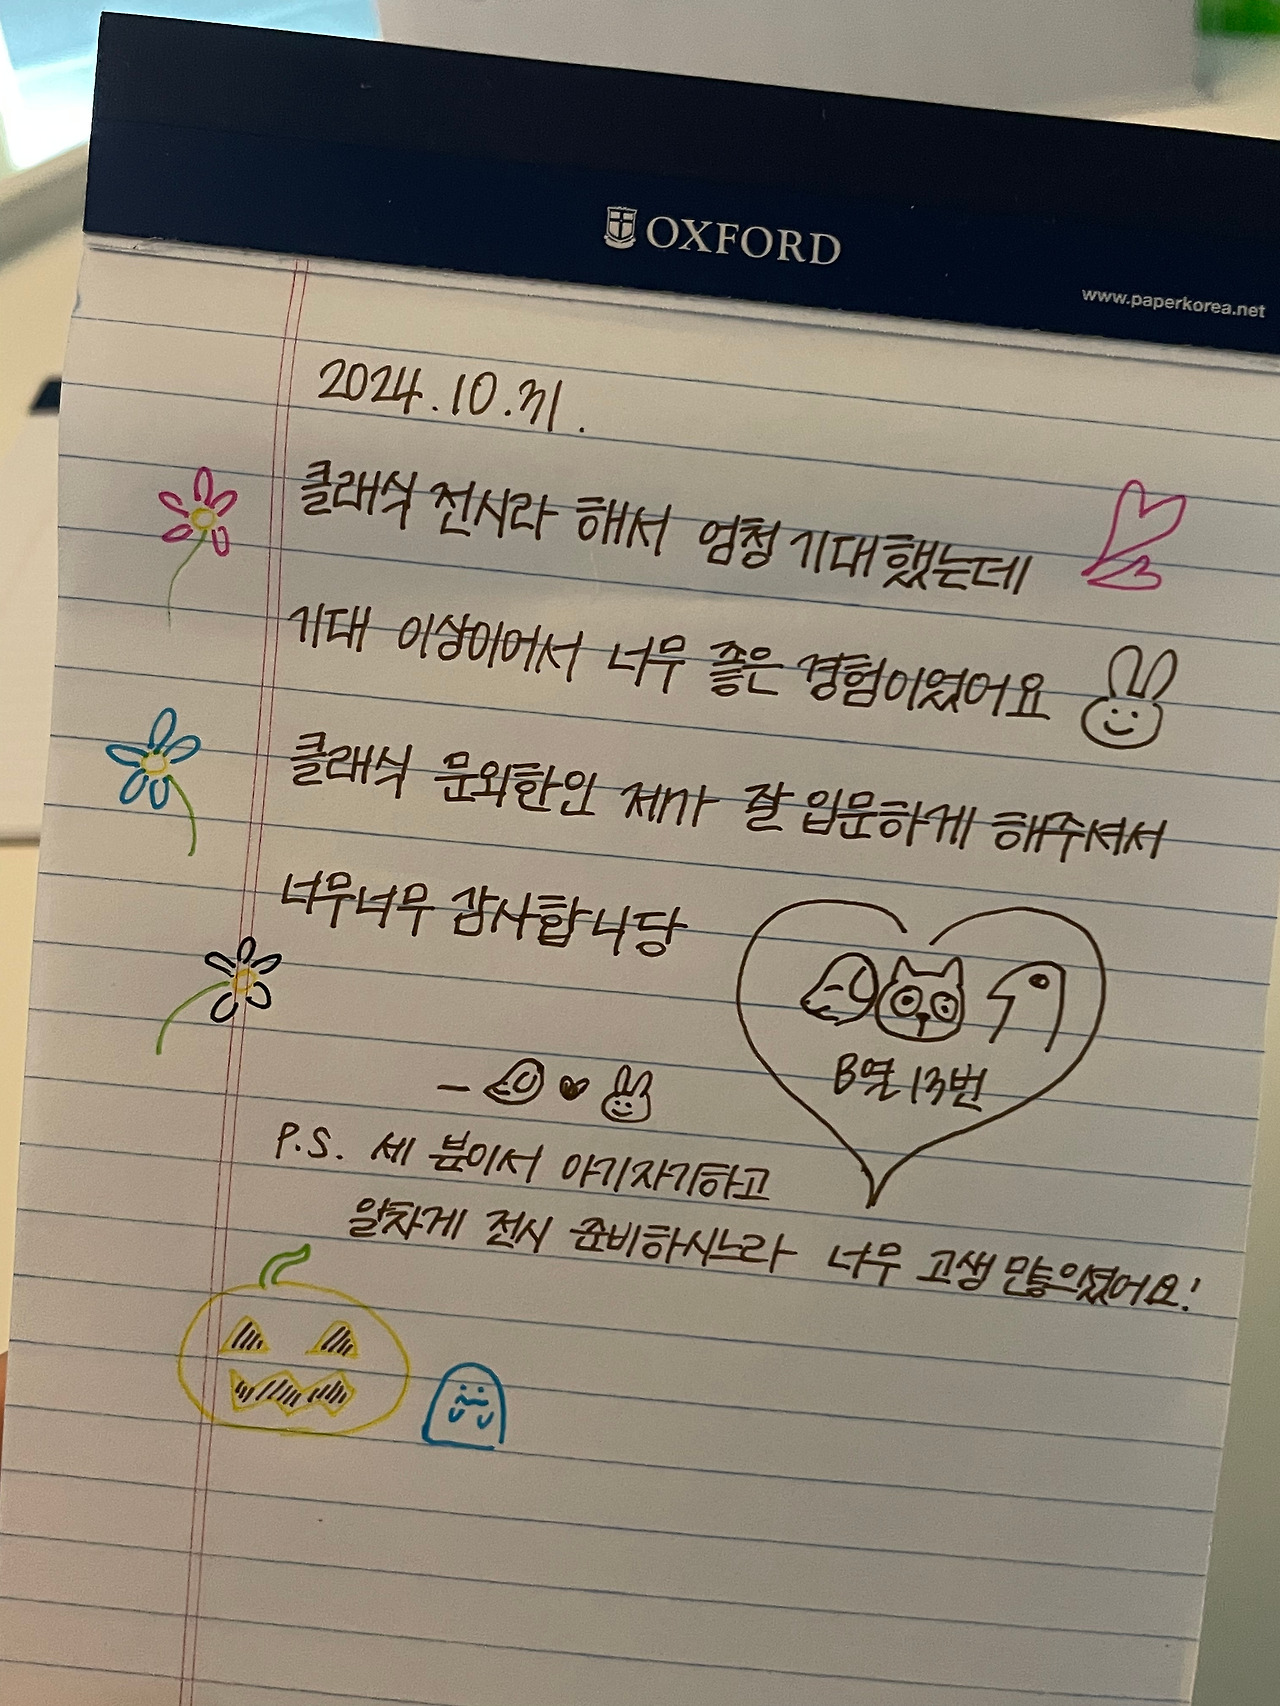 OXFORD
www.paperkorea.net
2024.10.31.
클래식 전시라 해서 엄청 기대했는데
기대 이상이어서 너무 좋은 경험이었어요
클래식 문외한인 제가 잘 입문하게 해주셔서
너무너무 감사합니당
B열 13번
P.S. 세 분이서 아기자기하고
알차게 전시 준비하시느라 너무 고생 많으셨어요!